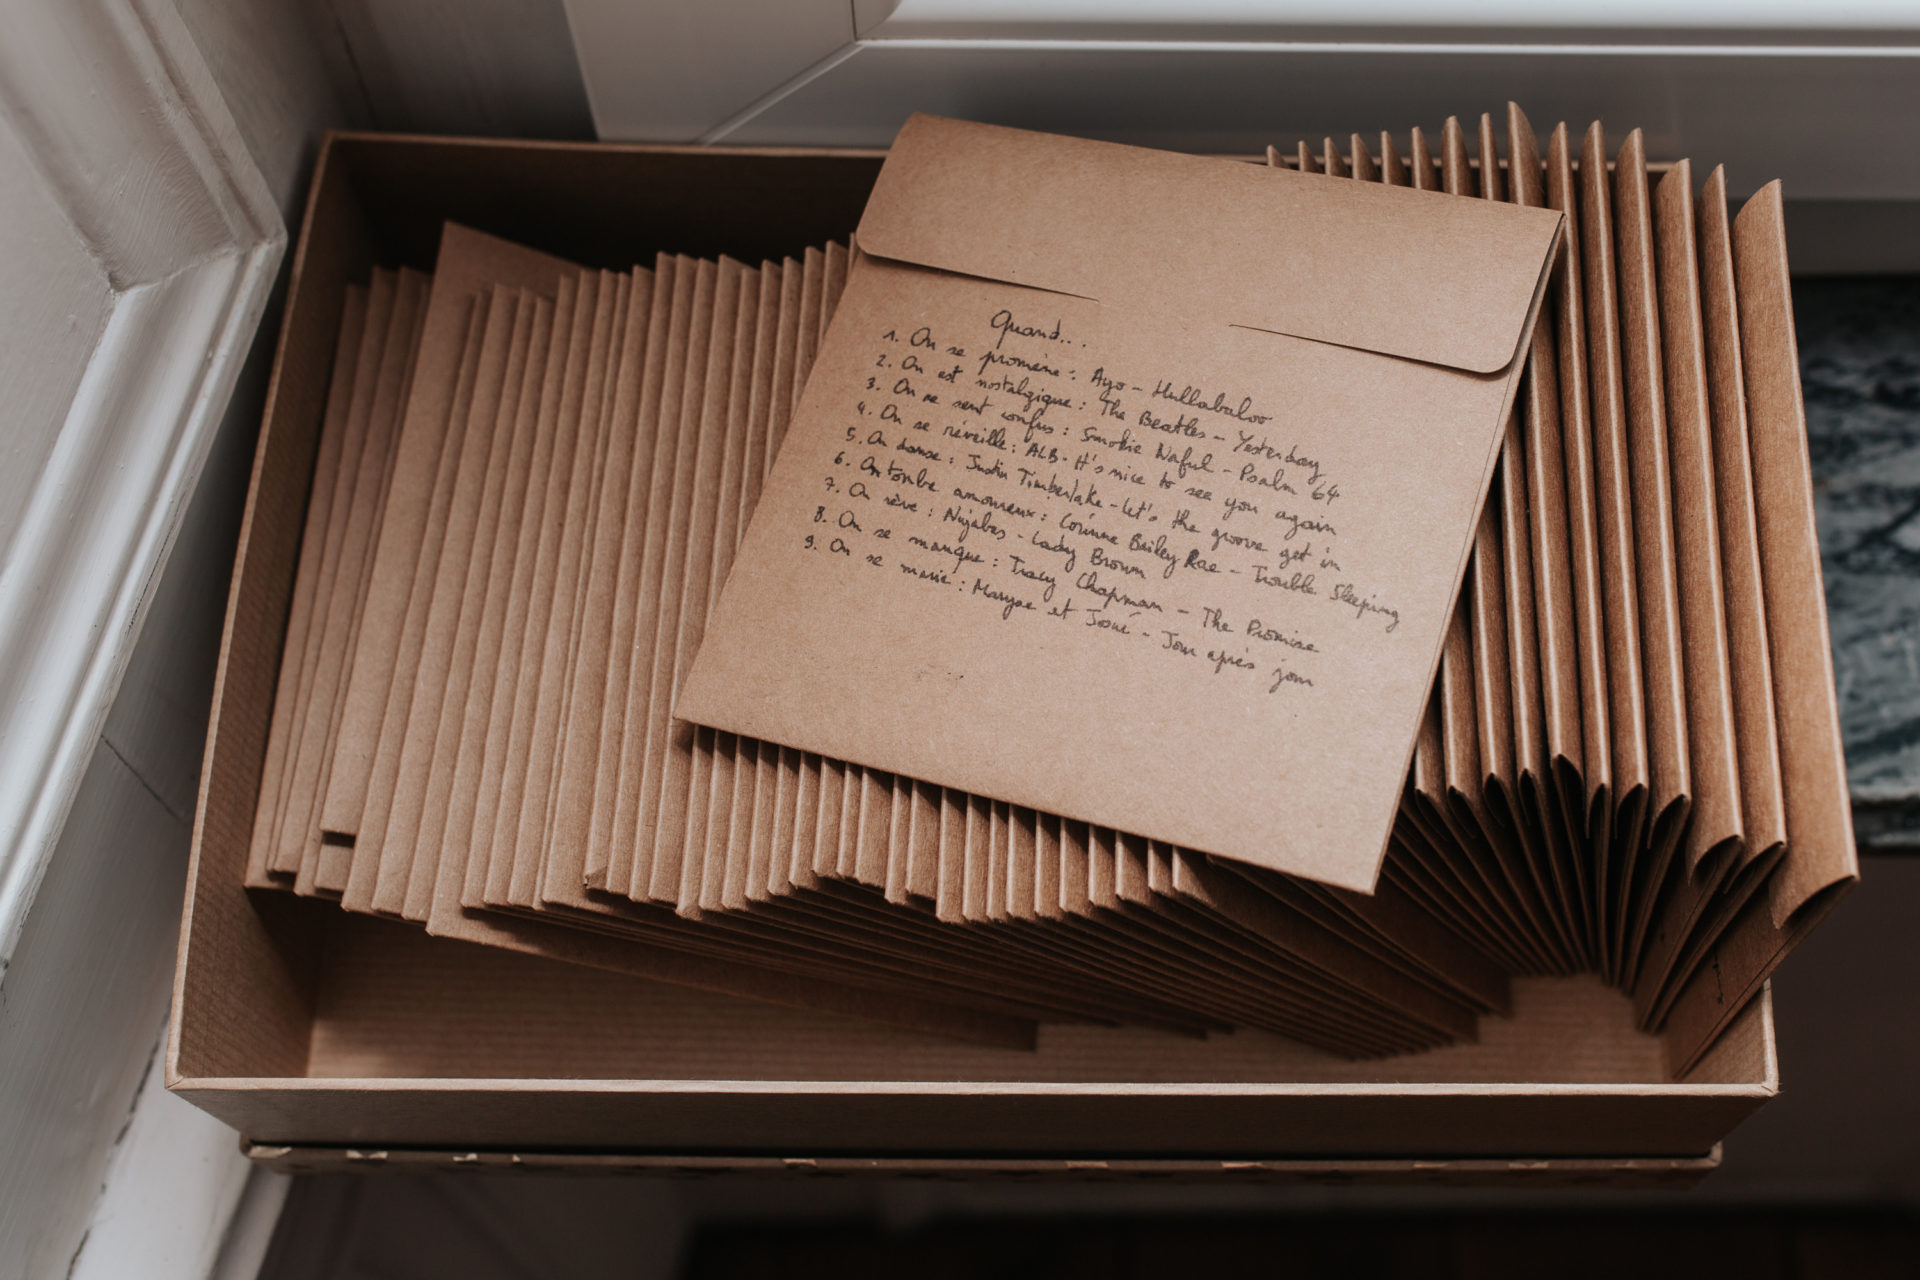 Quand...
1. On se promène : Ayo - Hullabaloo
2. On est nostalgique : The Beatles - Yesterday
3. On se sent confus : Smokie Naful - Psalm 64
4. On se réveille : ALB - It's nice to see you again
5. On danse : Justin Timberlake - Let's the groove get in
6. On tombe amoureux : Corinne Bailey Rae - Trouble Sleeping
7. On rêve : Nujabes - Lady Brown
8. On se manque : Tracy Chapman - The Promise
9. On se marie : Maryse et Josué - Jour après jour